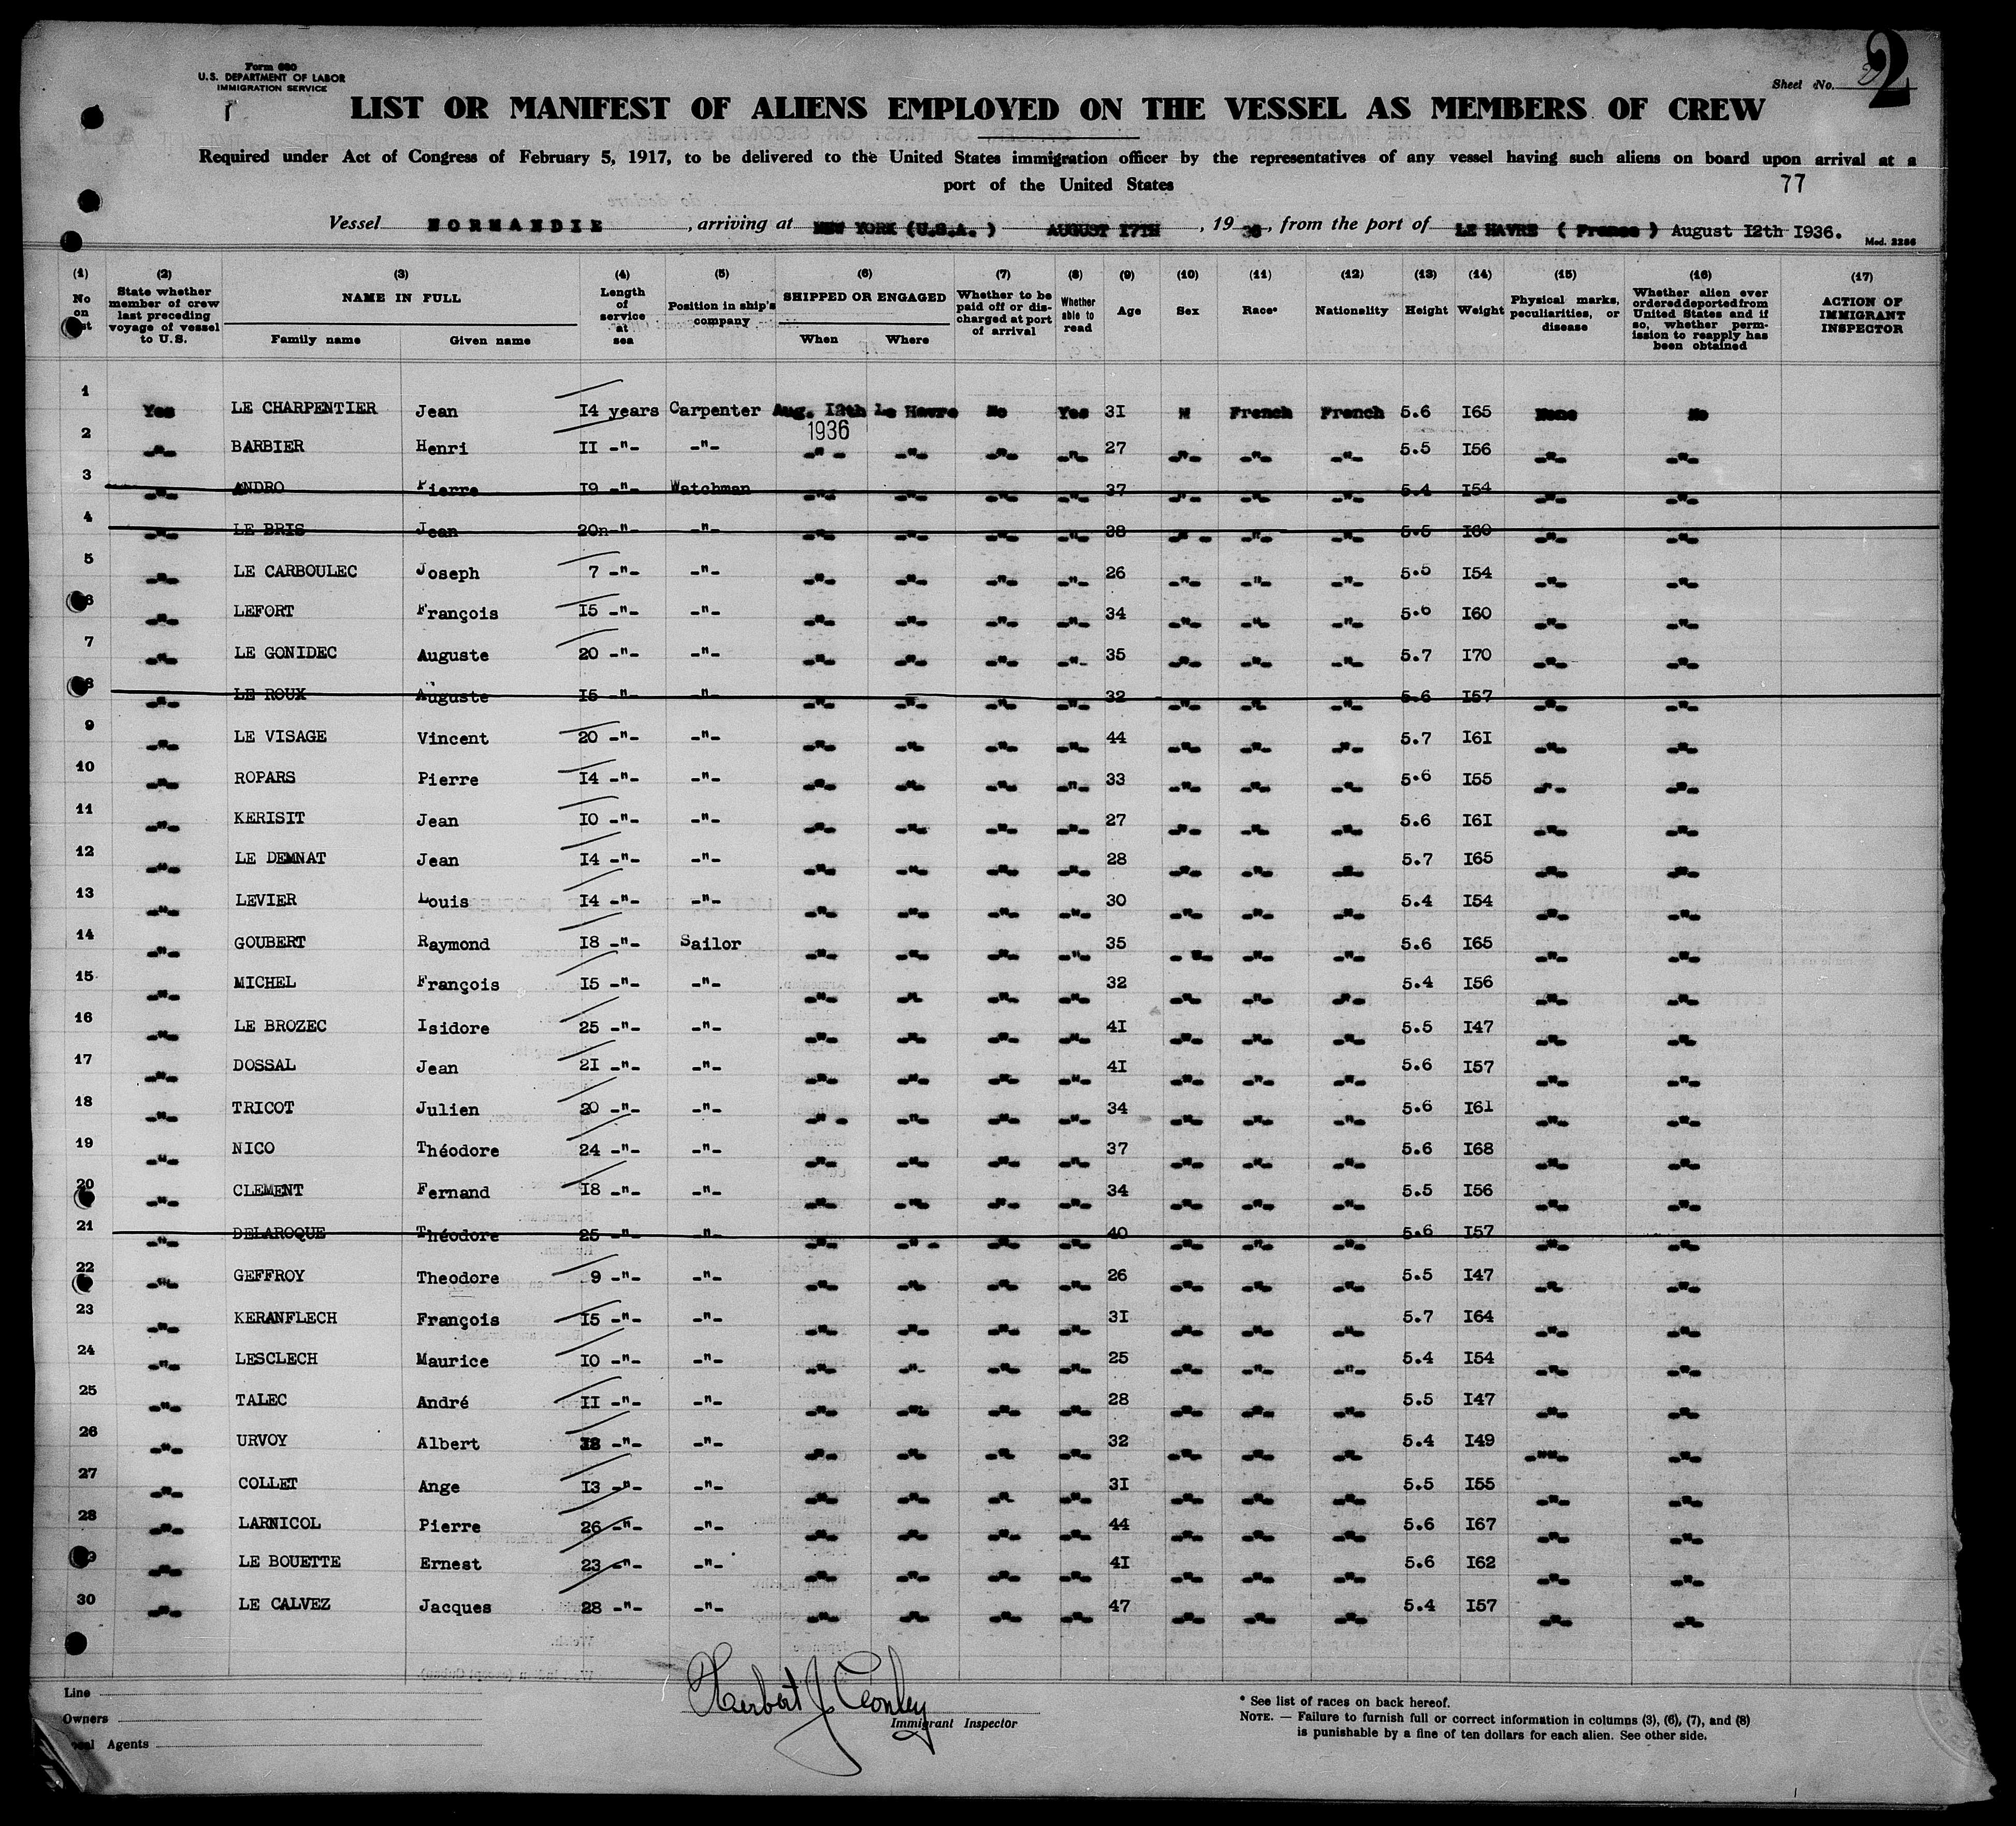 Form 680
U.S. DEPARTMENT OF LABOR
IMMIGRATION SERVICE
Sheet No. 2
2
LIST OR MANIFEST OF ALIENS EMPLOYED ON THE VESSEL AS MEMBERS OF CREW
Required under Act of Congress of February 5, 1917, to be delivered to the United States immigration officer by the representatives of any vessel having such aliens on board upon arrival at a
port of the United States
77
Vessel NORMANDIE, arriving at NEW YORK (U.S.A.) AUGUST 17TH, 1936, from the port of LE HAVRE (France) August I2th I936.
Mod. 2286
(1) (2) (3) (4) (5) (6) (7) (8) (9) (10) (11) (12) (13) (14) (15) (16) (17)
No on list | State whether member of crew last preceding voyage of vessel to U.S. | NAME IN FULL Family name Given name | Length of service at sea | Position in ship's company | SHIPPED OR ENGAGED When Where | Whether to be paid off or discharged at port of arrival | Whether able to read | Age | Sex | Race* | Nationality | Height | Weight | Physical marks, peculiarities, or disease | Whether alien ever ordered deported from United States and if so, whether permission to reapply has been obtained | ACTION OF IMMIGRANT INSPECTOR
1 Yes LE CHARPENTIER Jean I4 years Carpenter Aug. I2th 1936 Le Havre No Yes 3I M French French 5.6 I65 None No
2 -"- BARBIER Henri II -"- -"- -"- -"- -"- -"- 27 -"- -"- -"- 5.5 I56 -"- -"-
3 -"- ANDRO Pierre I9 -"- Watchman -"- -"- -"- -"- 37 -"- -"- -"- 5.4 I54 -"- -"-
4 -"- LE BRIS Jean 20 -"- -"- -"- -"- -"- -"- 38 -"- -"- -"- 5.5 I60 -"- -"-
5 -"- LE CARBOULEC Joseph 7 -"- -"- -"- -"- -"- -"- 26 -"- -"- -"- 5.5 I54 -"- -"-
6 -"- LEFORT François I5 -"- -"- -"- -"- -"- -"- 34 -"- -"- -"- 5.6 I60 -"- -"-
7 -"- LE GONIDEC Auguste 20 -"- -"- -"- -"- -"- -"- 35 -"- -"- -"- 5.7 I70 -"- -"-
8 -"- LE ROUX Auguste I5 -"- -"- -"- -"- -"- -"- 32 -"- -"- -"- 5.6 I57 -"- -"-
9 -"- LE VISAGE Vincent 20 -"- -"- -"- -"- -"- -"- 44 -"- -"- -"- 5.7 I6I -"- -"-
10 -"- ROPARS Pierre I4 -"- -"- -"- -"- -"- -"- 33 -"- -"- -"- 5.6 I55 -"- -"-
11 -"- KERISIT Jean I0 -"- -"- -"- -"- -"- -"- 27 -"- -"- -"- 5.6 I6I -"- -"-
12 -"- LE DEMNAT Jean I4 -"- -"- -"- -"- -"- -"- 28 -"- -"- -"- 5.7 I65 -"- -"-
13 -"- LEVIER Louis I4 -"- -"- -"- -"- -"- -"- 30 -"- -"- -"- 5.4 I54 -"- -"-
14 -"- GOUBERT Raymond I8 -"- Sailor -"- -"- -"- -"- 35 -"- -"- -"- 5.6 I65 -"- -"-
15 -"- MICHEL François I5 -"- -"- -"- -"- -"- -"- 32 -"- -"- -"- 5.4 I56 -"- -"-
16 -"- LE BROZEC Isidore 25 -"- -"- -"- -"- -"- -"- 4I -"- -"- -"- 5.5 I47 -"- -"-
17 -"- DOSSAL Jean 2I -"- -"- -"- -"- -"- -"- 4I -"- -"- -"- 5.6 I57 -"- -"-
18 -"- TRICOT Julien 20 -"- -"- -"- -"- -"- -"- 34 -"- -"- -"- 5.6 I61 -"- -"-
19 -"- NICO Théodore 24 -"- -"- -"- -"- -"- -"- 37 -"- -"- -"- 5.6 I68 -"- -"-
20 -"- CLEMENT Fernand I8 -"- -"- -"- -"- -"- -"- 34 -"- -"- -"- 5.5 I56 -"- -"-
21 -"- DELAROQUE Théodore 25 -"- -"- -"- -"- -"- -"- 40 -"- -"- -"- 5.6 I57 -"- -"-
22 -"- GEFFROY Theodore 9 -"- -"- -"- -"- -"- -"- 26 -"- -"- -"- 5.5 I47 -"- -"-
23 -"- KERANFLECH François I5 -"- -"- -"- -"- -"- -"- 3I -"- -"- -"- 5.7 I64 -"- -"-
24 -"- LESCLECH Maurice I0 -"- -"- -"- -"- -"- -"- 25 -"- -"- -"- 5.4 I54 -"- -"-
25 -"- TALEC André II -"- -"- -"- -"- -"- -"- 28 -"- -"- -"- 5.5 I47 -"- -"-
26 -"- URVOY Albert -"- -"- -"- -"- -"- -"- 32 -"- -"- -"- 5.4 I49 -"- -"-
27 -"- COLLET Ange I3 -"- -"- -"- -"- -"- -"- 3I -"- -"- -"- 5.5 I55 -"- -"-
28 -"- LARNICOL Pierre 26 -"- -"- -"- -"- -"- -"- 44 -"- -"- -"- 5.6 I67 -"- -"-
29 -"- LE BOUETTE Ernest 23 -"- -"- -"- -"- -"- -"- 4I -"- -"- -"- 5.6 I62 -"- -"-
30 -"- LE CALVEZ Jacques 28 -"- -"- -"- -"- -"- -"- 47 -"- -"- -"- 5.4 I57 -"- -"-
Line
Owners
Local Agents
Herbert J Conley
Immigrant Inspector
* See list of races on back hereof.
NOTE. — Failure to furnish full or correct information in columns (3), (6), (7), and (8)
is punishable by a fine of ten dollars for each alien. See other side.